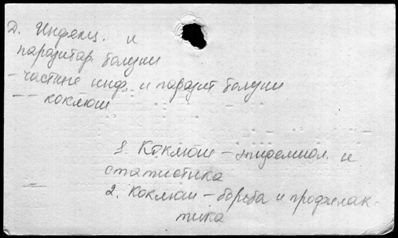 2. Инфекц. и
паразитар. болезни
- частные инф. и паразит болезни
-- коклюш
1. Коклюш - эпидемиол. и
статистика
2. Коклюш - борьба и профилак-
тика